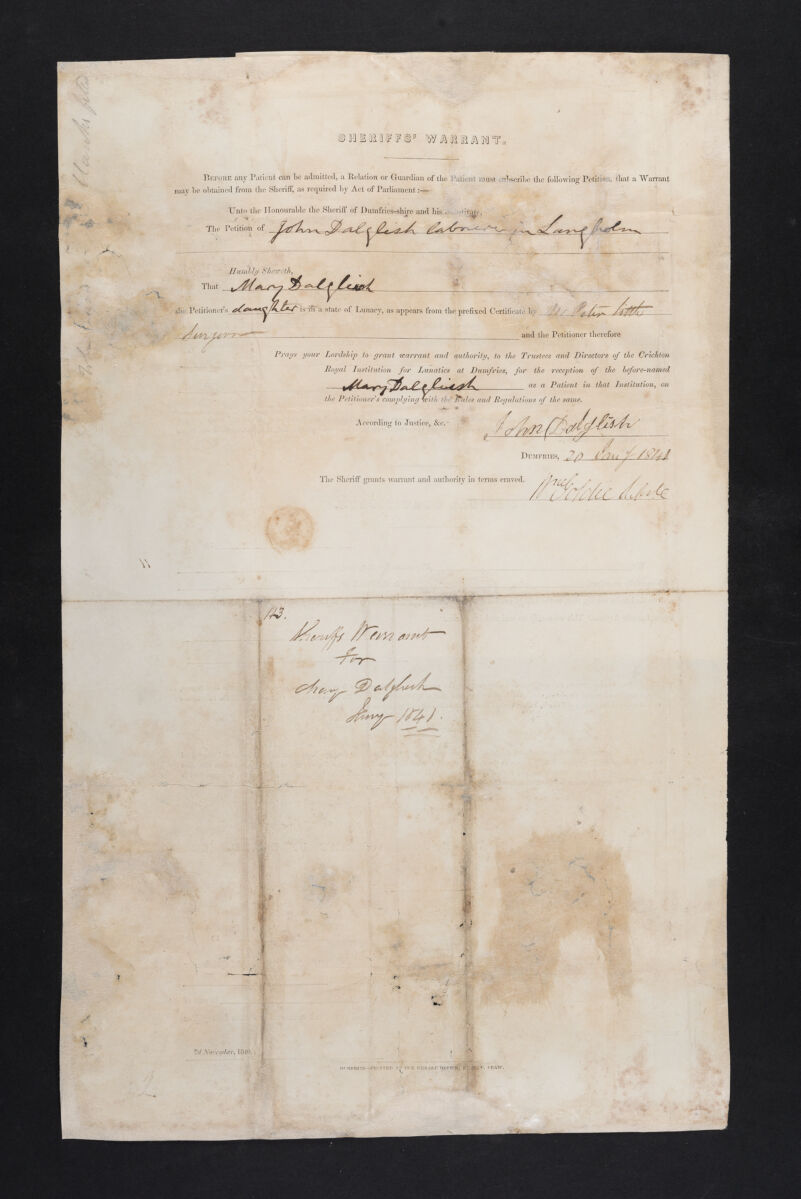 SHERIFFS' WARRANT.
BEFORE any Patient can be admitted, a Relation or Guardian of the Patient must subscribe the following Petition, that a Warrant
may be obtained from the Sheriff, as required by Act of Parliament:—
Unto the Honourable the Sheriff of Dumfries-shire and his
The Petition of John Dalglish labourer in Langholm
Humbly Sheweth,
That Mary Dalgliesh
the Petitioner's daughter is in a state of Lunacy, as appears from the prefixed Certificate by Mr Peter Little
Surgeon and the Petitioner therefore
Prays your Lordship to grant warrant and authority, to the Trustees and Directors of the Crichton
Royal Institution for Lunatics at Dumfries, for the reception of the before-named
Mary Dalgliesh as a Patient in that Institution, on
the Petitioner's complying with the Rules and Regulations of the same.
According to Justice, &c.
John Dalglish
DUMFRIES, 20 Jany 1841
The Sheriff grants warrant and authority in terms craved.
113.
Sheriffs Warrant
For
Mary Dalglish
Jany 1841.
2d November, 1840.
DUMFRIES—PRINTED AT THE HERALD OFFICE,